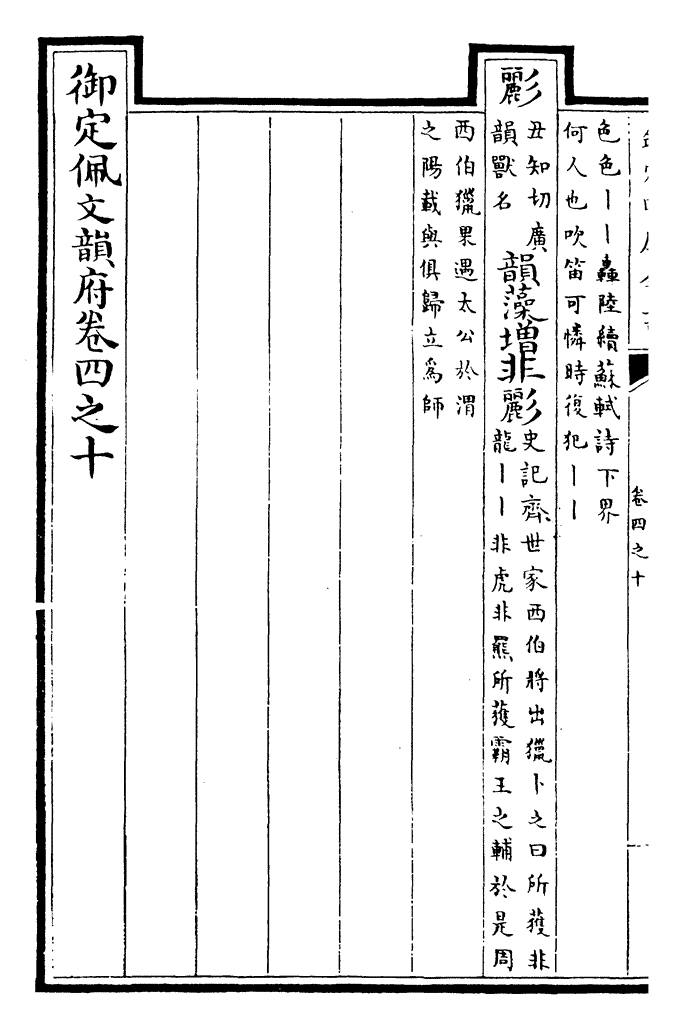 卷四之十
色色丨丨轟陸續蘇軾詩下界
何人也吹笛可憐時復犯丨丨
彲
丑知切廣
韻獸名
韻藻增非彲
史記齊世家西伯將出獵卜之曰所獲非
龍丨丨非虎非羆所獲霸王之輔於是周
西伯獵果遇太公於渭
之陽載與俱歸立爲師
御定佩文韻府卷四之十